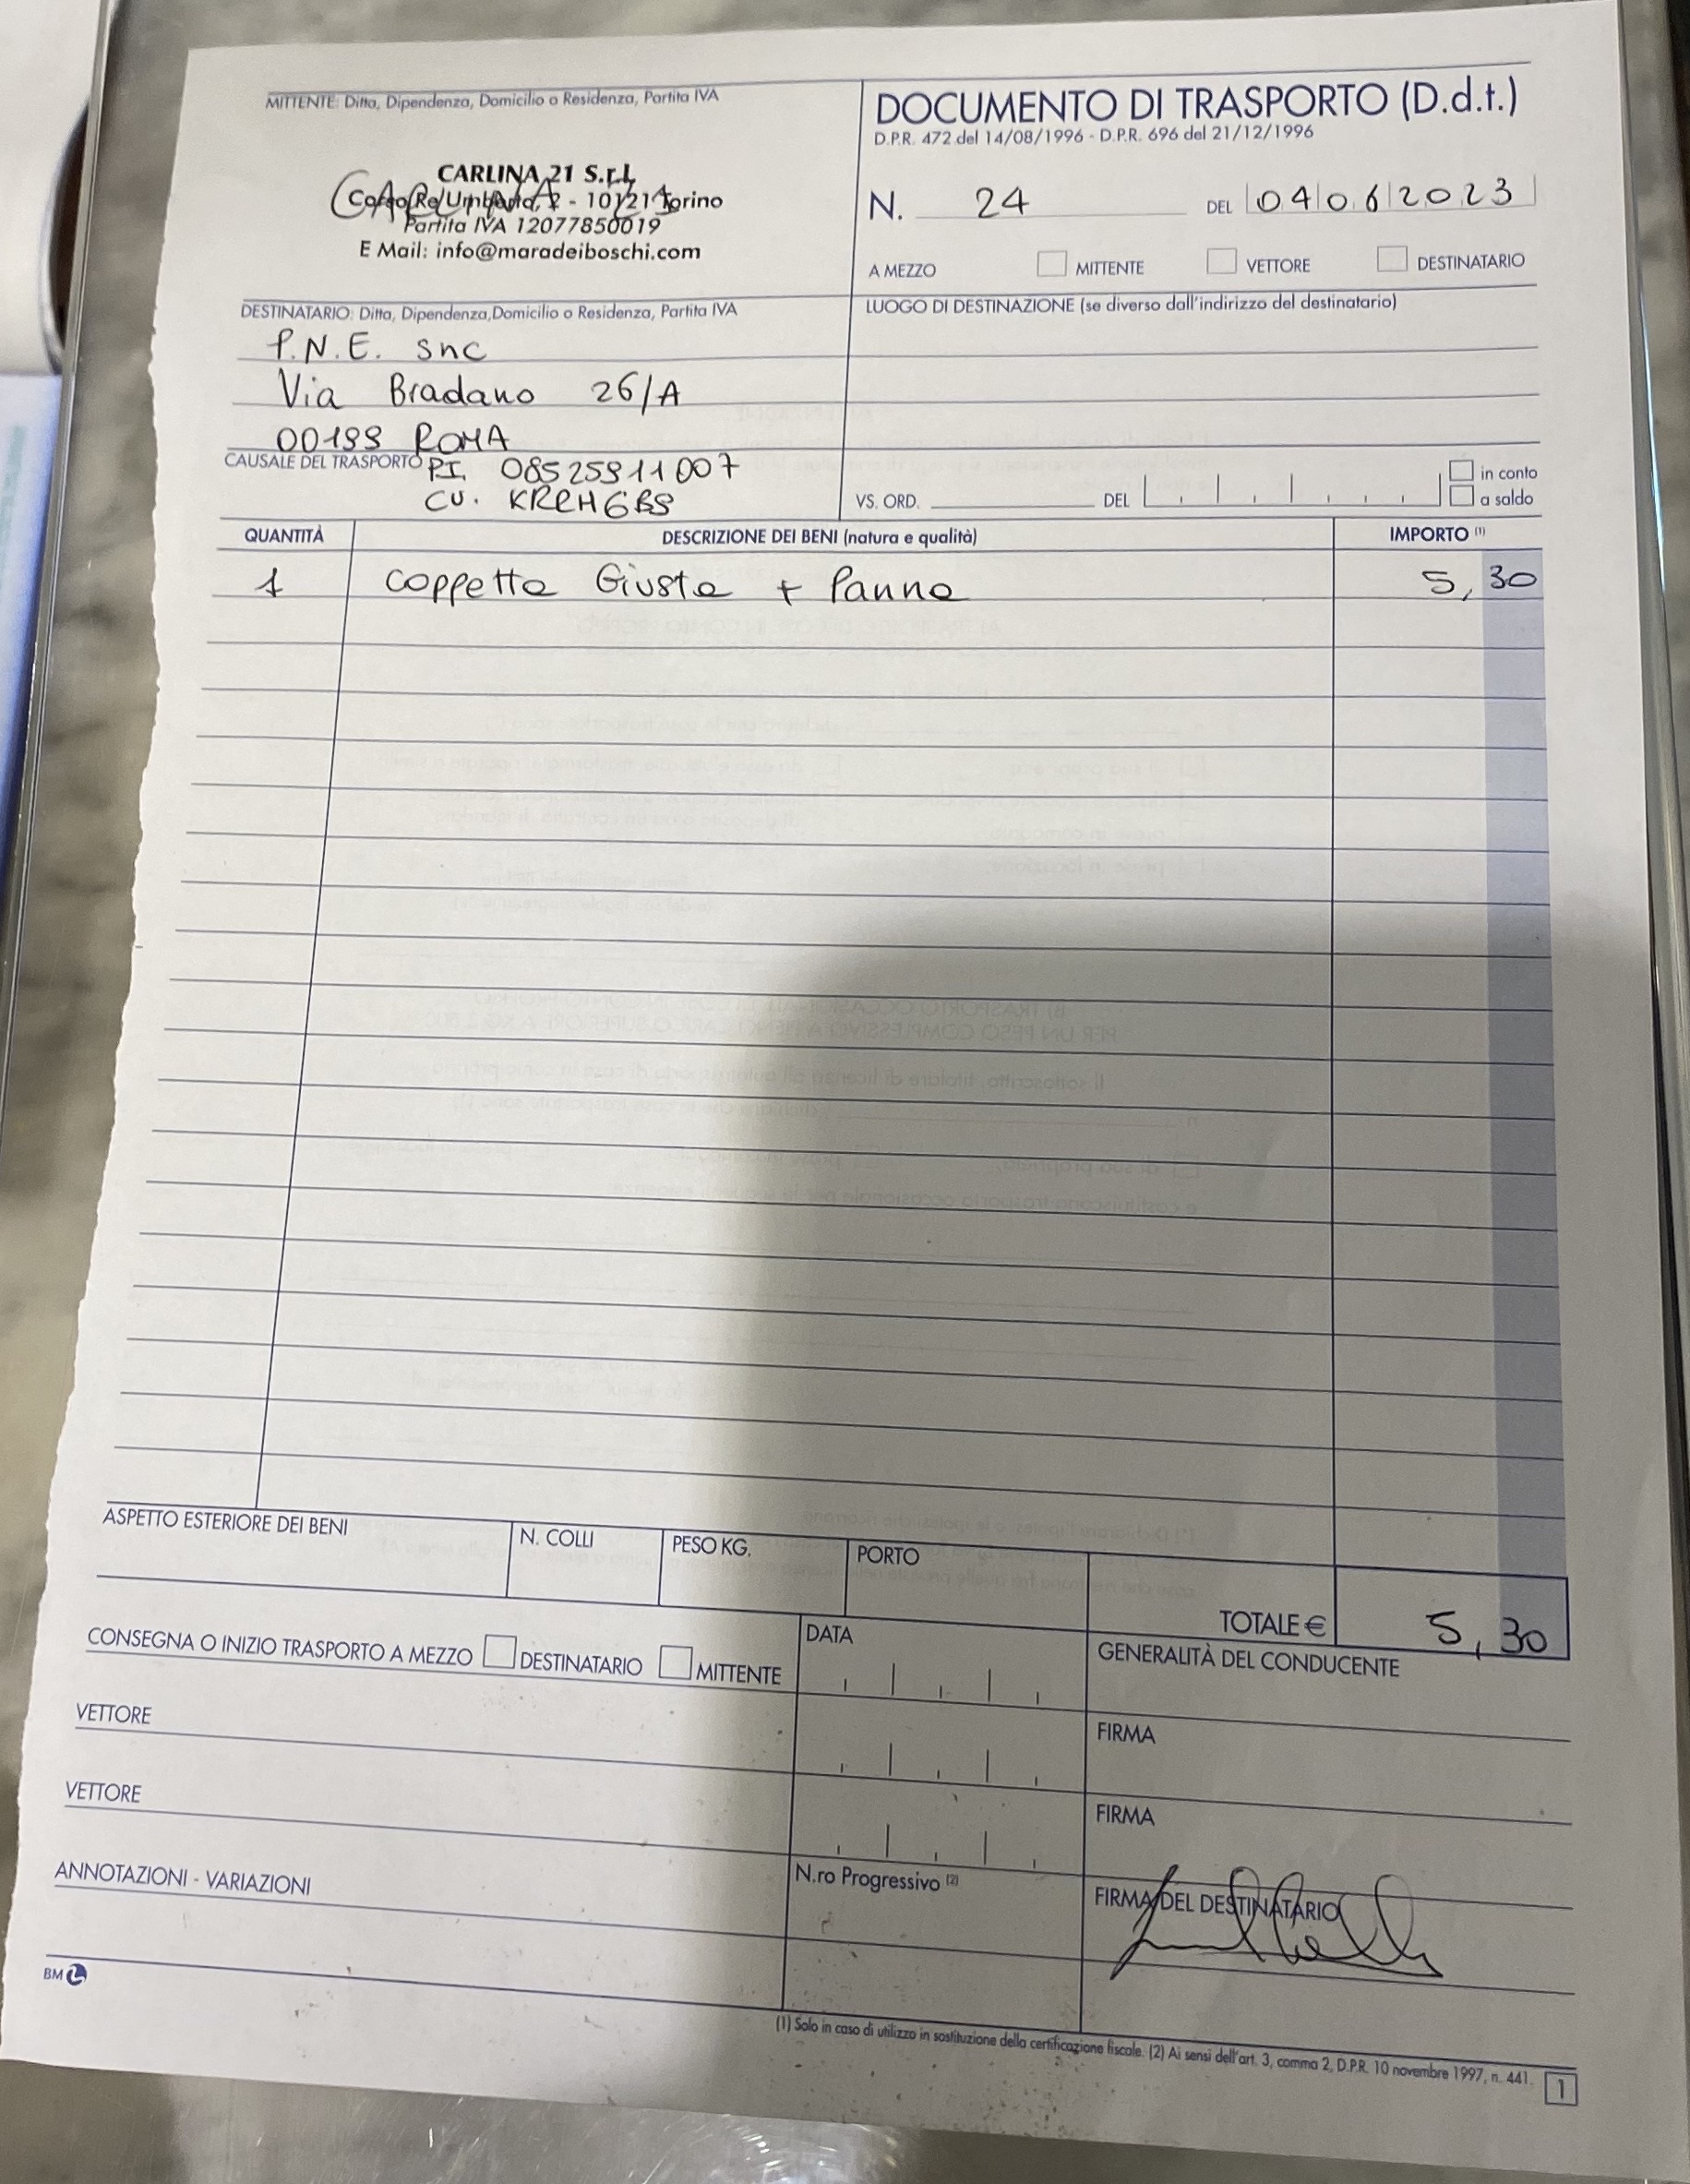 MITTENTE: Ditta, Dipendenza, Domicilio o Residenza, Partita IVA
CARLINA 21 S.r.l.
Corso Re Umberto, 2 - 10121 Torino
Partita IVA 12077850019
E Mail: info@maradeiboschi.com
DOCUMENTO DI TRASPORTO (D.d.t.)
D.P.R. 472 del 14/08/1996 - D.P.R. 696 del 21/12/1996
N. 24 DEL 04 06 2023
A MEZZO MITTENTE VETTORE DESTINATARIO
DESTINATARIO: Ditta, Dipendenza, Domicilio o Residenza, Partita IVA
P.N.E. snc
Via Bradano 26/A
00199 ROMA
LUOGO DI DESTINAZIONE (se diverso dall'indirizzo del destinatario)
CAUSALE DEL TRASPORTO P.I. 08525911007
CU. KRRH6B9
VS. ORD. DEL in conto
a saldo
QUANTITÀ DESCRIZIONE DEI BENI (natura e qualità) IMPORTO (1)
1 coppetta Giusta + Panna 5,30
ASPETTO ESTERIORE DEI BENI N. COLLI PESO KG. PORTO
TOTALE € 5,30
CONSEGNA O INIZIO TRASPORTO A MEZZO DESTINATARIO MITTENTE DATA GENERALITÀ DEL CONDUCENTE
VETTORE FIRMA
VETTORE FIRMA
ANNOTAZIONI - VARIAZIONI N.ro Progressivo (2) FIRMA DEL DESTINATARIO
BM
(1) Solo in caso di utilizzo in sostituzione della certificazione fiscale. (2) Ai sensi dell'art. 3, comma 2, D.P.R. 10 novembre 1997, n. 441.
1